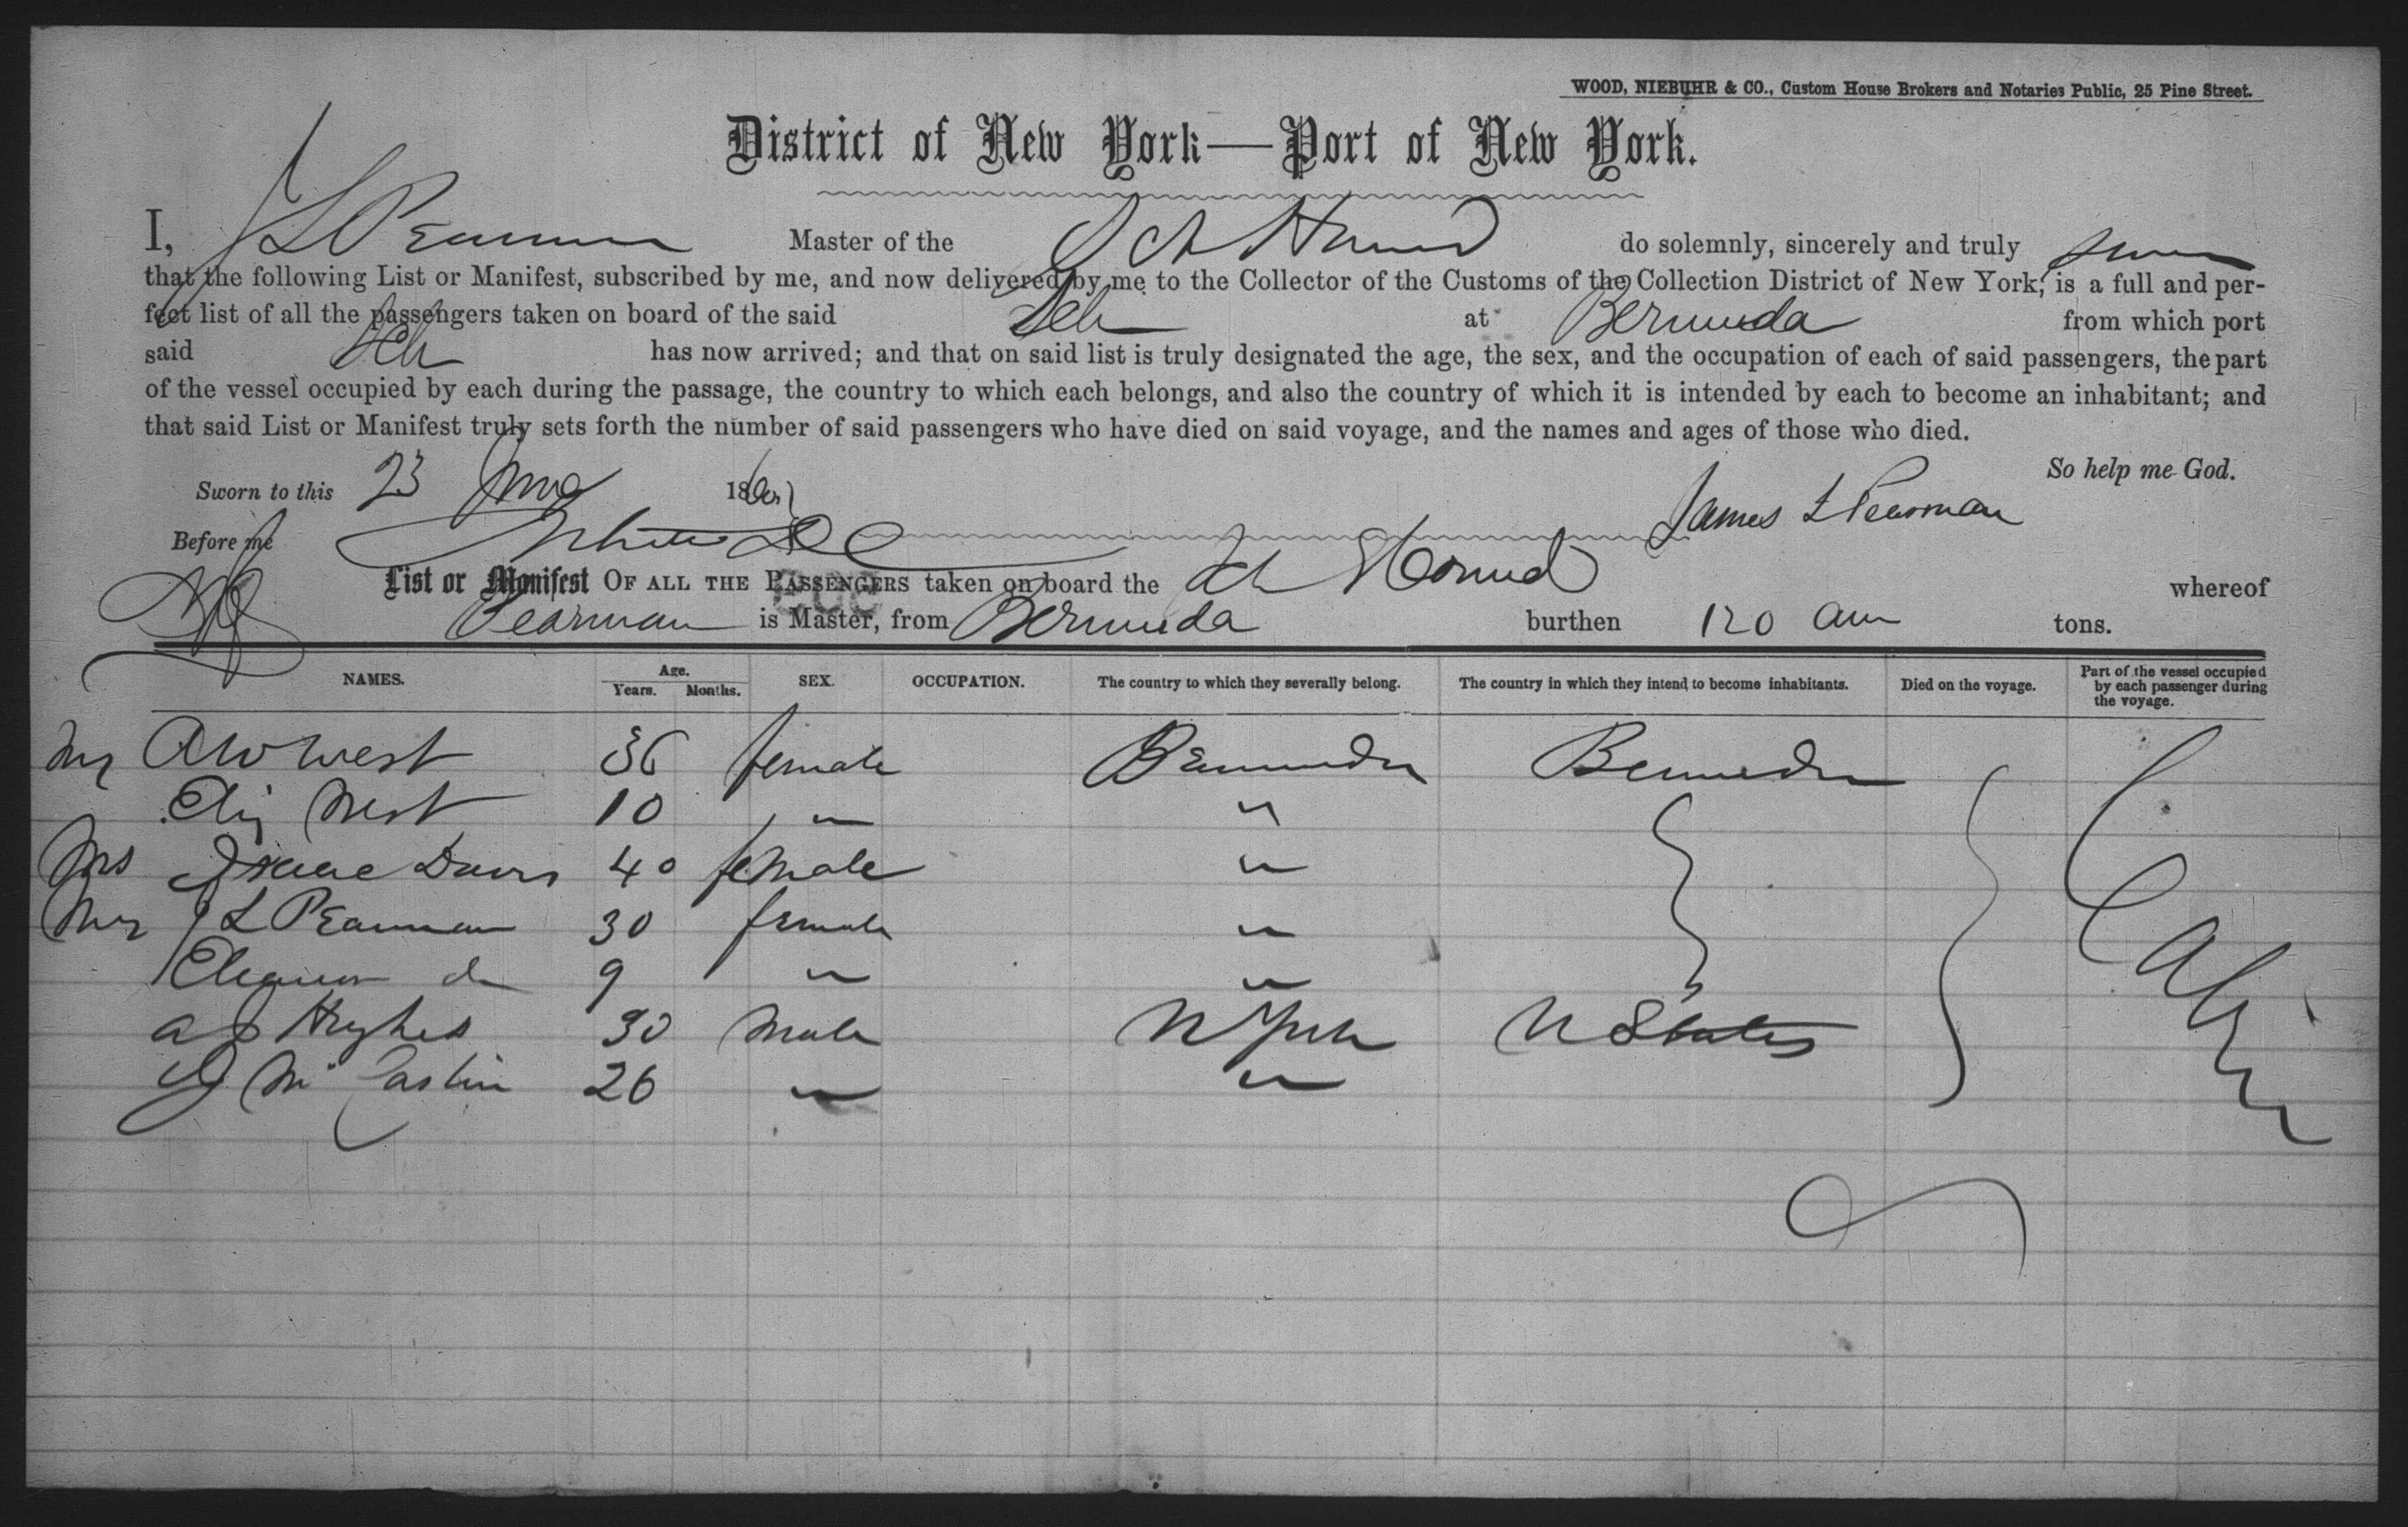 WOOD, NIEBUHR & CO., Custom House Brokers and Notaries Public, 25 Pine Street.
District of New York—Port of New York.
I, J L Pearman Master of the Sch do solemnly, sincerely and truly swear
that the following List or Manifest, subscribed by me, and now delivered by me to the Collector of the Customs of the Collection District of New York, is a full and per-
fect list of all the passengers taken on board of the said Sch at Bermuda from which port
said Sch has now arrived; and that on said list is truly designated the age, the sex, and the occupation of each of said passengers, the part
of the vessel occupied by each during the passage, the country to which each belongs, and also the country of which it is intended by each to become an inhabitant; and
that said List or Manifest truly sets forth the number of said passengers who have died on said voyage, and the names and ages of those who died.
So help me God.
Sworn to this 23 186
James L Pearman
Before me
List or Manifest OF ALL THE PASSENGERS taken on board the Sch whereof
Pearman is Master, from Bermuda burthen 120 tons.
NAMES. Age. Years. Months. SEX. OCCUPATION. The country to which they severally belong. The country in which they intend to become inhabitants. Died on the voyage. Part of the vessel occupied by each passenger during the voyage.
Mrs A W West 36 female Bermuda Bermuda
Eliz West 10 "
Mrs Isaac Davis 40 female "
Mrs J L Pearman 30 female "
Eleanor do 9 " "
A J Hughes 30 Male N York U States
McCaslin 26 " "
Cabin